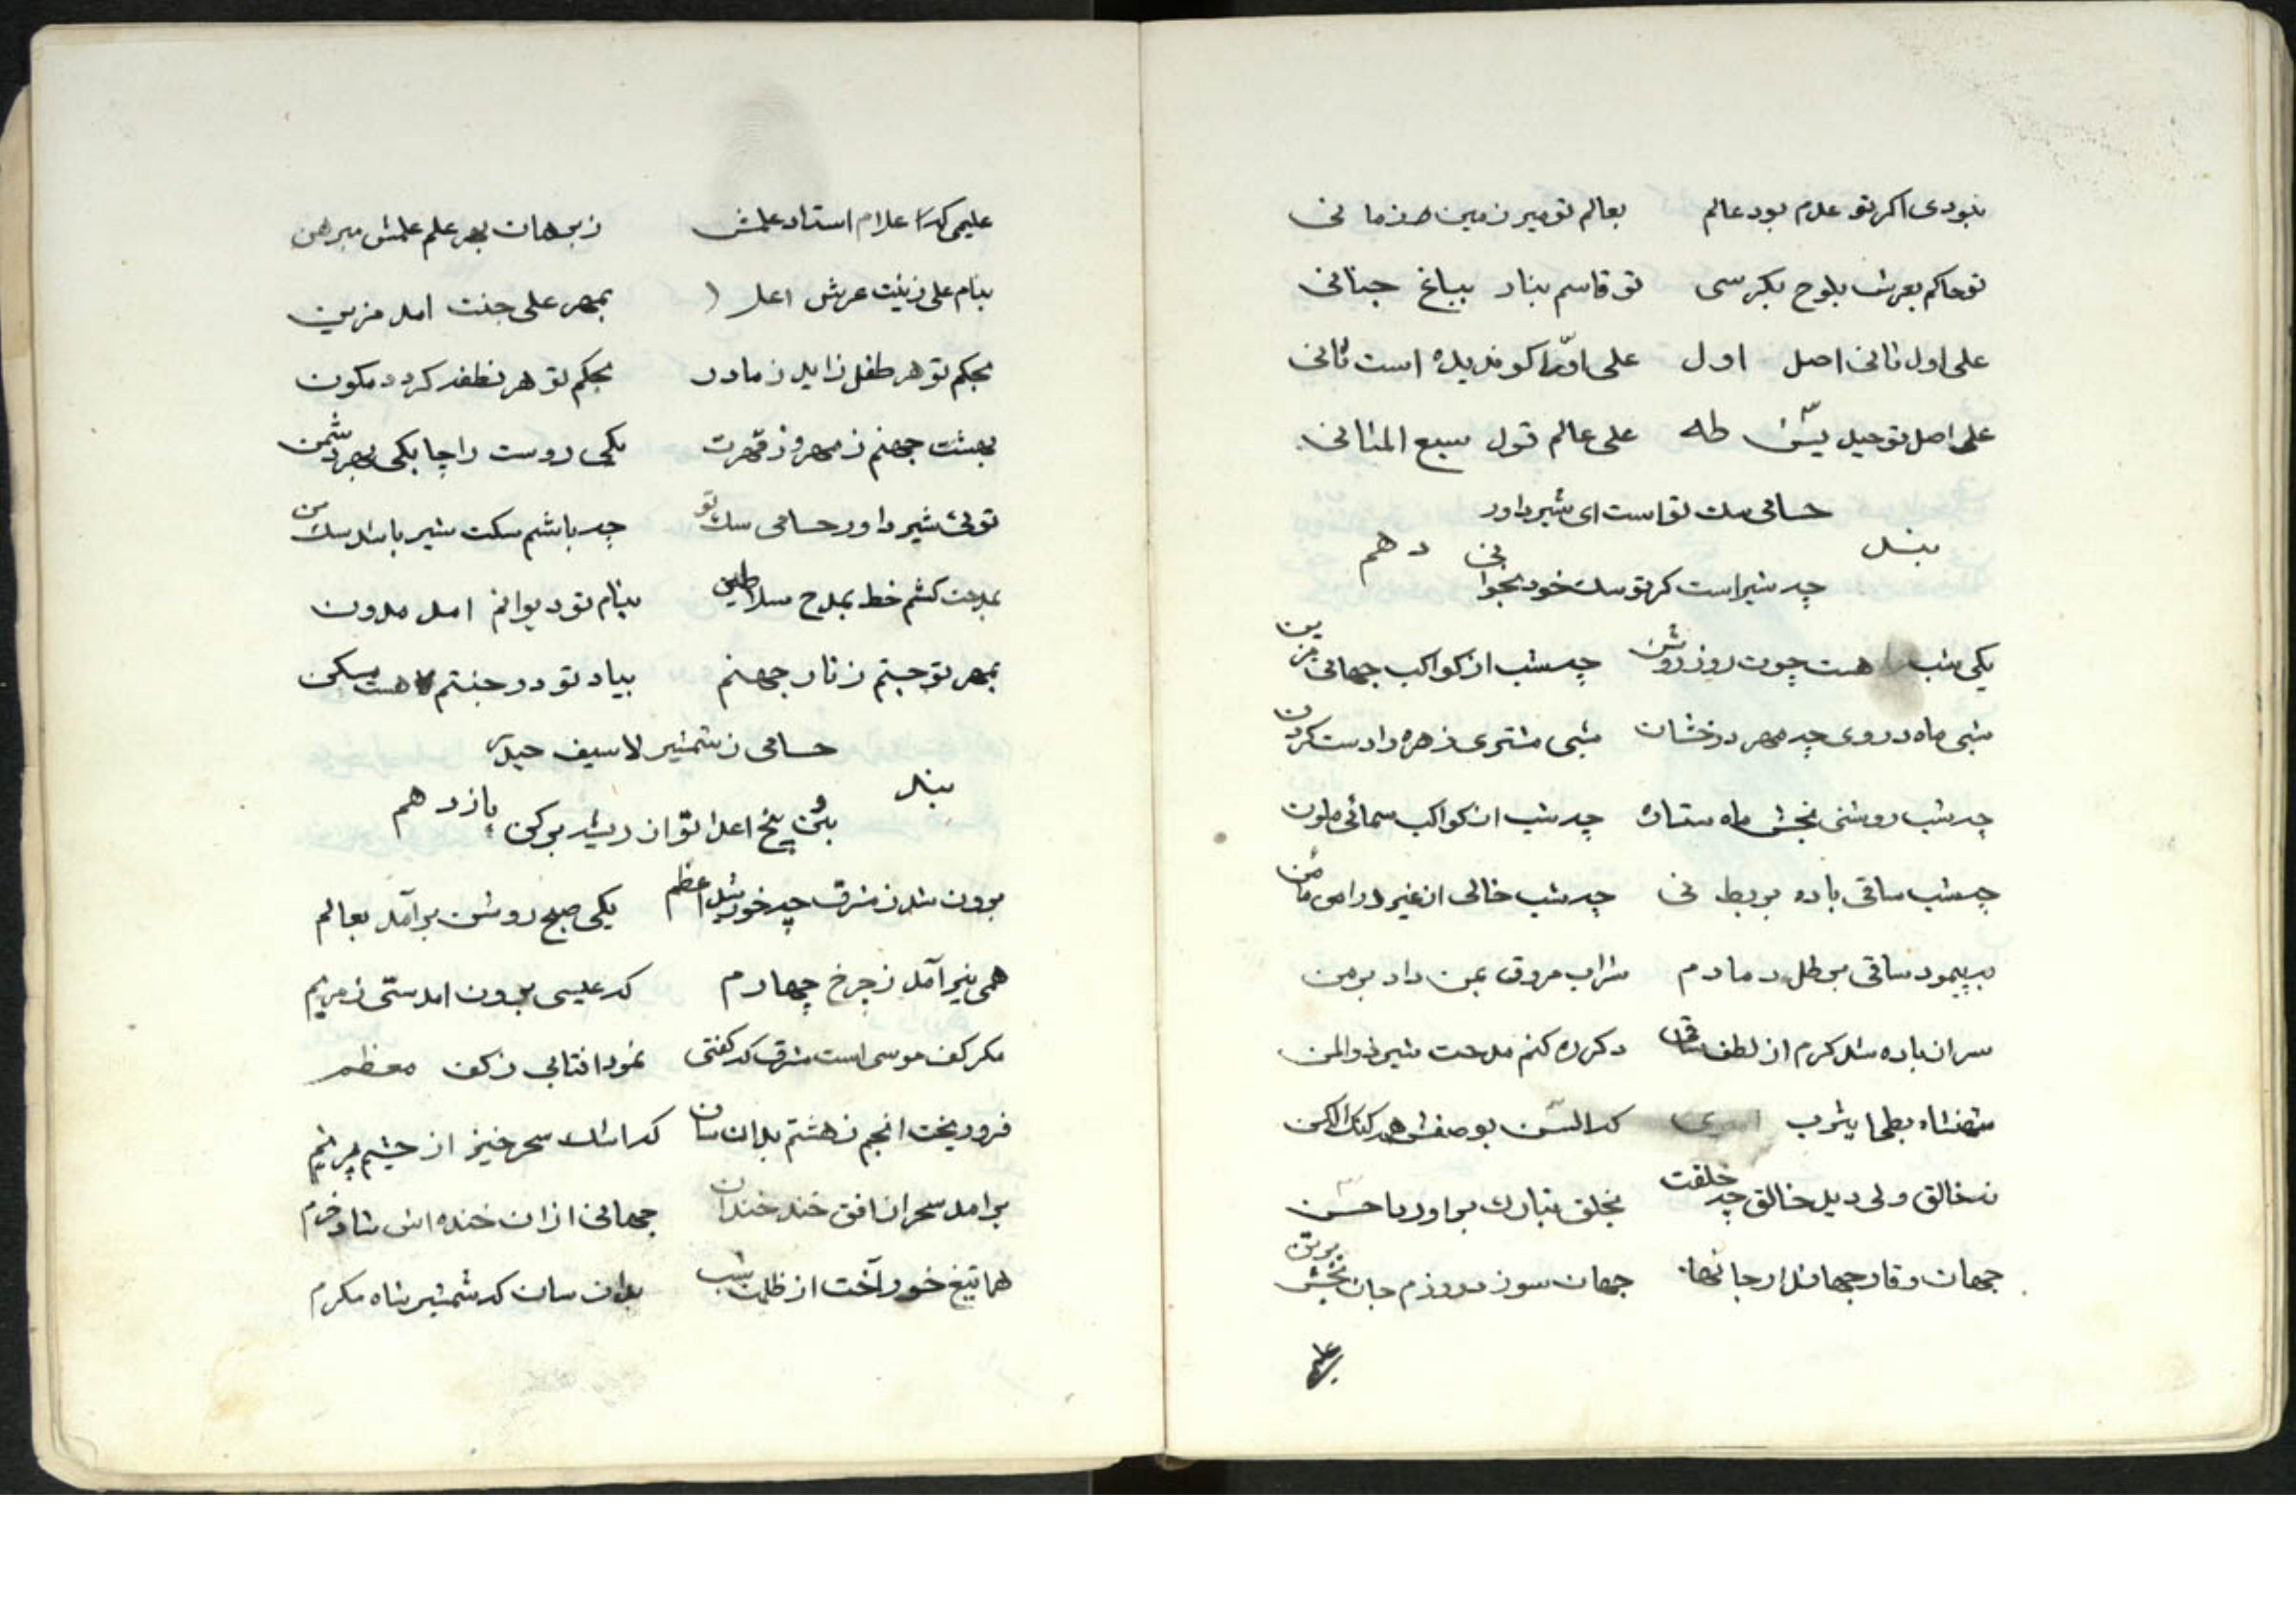 نبودی اکر تو عدم بود عالم بعالم تو میر زمین و زمانی
تو حاکم بعرش بلوح بکرسی تو قاسم بنار بباغ جنانی
علی اول ثانی اصل اول علی اوّل کو ندیده است ثانی
علی اصل توحید یسٓ طه علی عالم قول سبع المثانی
حسامی سک تو است ای شیر داور
بند دهم
چه شیر است کر تو سک خود بخوانی
یکی شب هست چون روز روشن چه شب از کواکب جهانی مزین
شبی ماه در وی چه مهر درخشان شبی مشتری زهره را دست کردن
چه شب روشنی بخش ماه ستاره چه شب از کواکب سمائی ملون
چه شب ساقی باده بربط نی چه شب خالی از غیر
به پیمود ساقی می رطل دمادم شراب مروق بمن داد بر من
سر از باده شد کرم از لطف ساقی دکر ره کنم مدحت شیر ذوالمن
شهنشاه بطحا یثرب که السن بوصفش همه کنک الکن
نه خالق ولی دید خالق چه خلقت بخلق تبارک بر او ربا حسن
جهان وقار جهاندار جانها جهان سوز در رزم جان بخش بر تن
علیم
علیمی که علام استاد علمش ز برهان بهر علم علمش مبرهن
بنام علی زینت عرش اعلا بمهر علی جنت امد مزین
بحکم تو هر طفل زاید ز مادر بحکم تو هر نطفه کردد مکون
بهشت جهنم ز مهر و ز قهرت یکی دوست را جا یکی بهر دشمن
توئی شیر داور حسامی سک تو چه باشم سکت شیر باشد سک من
بمدحت کشم خط بمدح سلاطین بنام تو دیوانم امد مدون
بمهر تو جستم ز نار جهنم بیاد تو در جنتم هست مسکن
حسامی ز شمشیر لا سیف حیدر
بند یازدهم
بن و بیخ اعدا تو از ریشه برکن
برون شد ز مشرق چه خورشید اعظم یکی صبح روشن برآمد بعالم
همی نیر آمد ز چرخ چهارم که عیسی برون امدستی ز مریم
مکر کف موسی است مشرق که کفتی نمود افتابی ز کف معظم
فرو ریخت انجم ز هشتم بدان سان که اشک سحر خیز از چشم پر نم
برامد سحر از افق خند خندان جهانی از ان خنده اش شاد و خرم
هما تیغ خور آخت از ظلمت شب بدان سان که شمشیر شاه مکرم